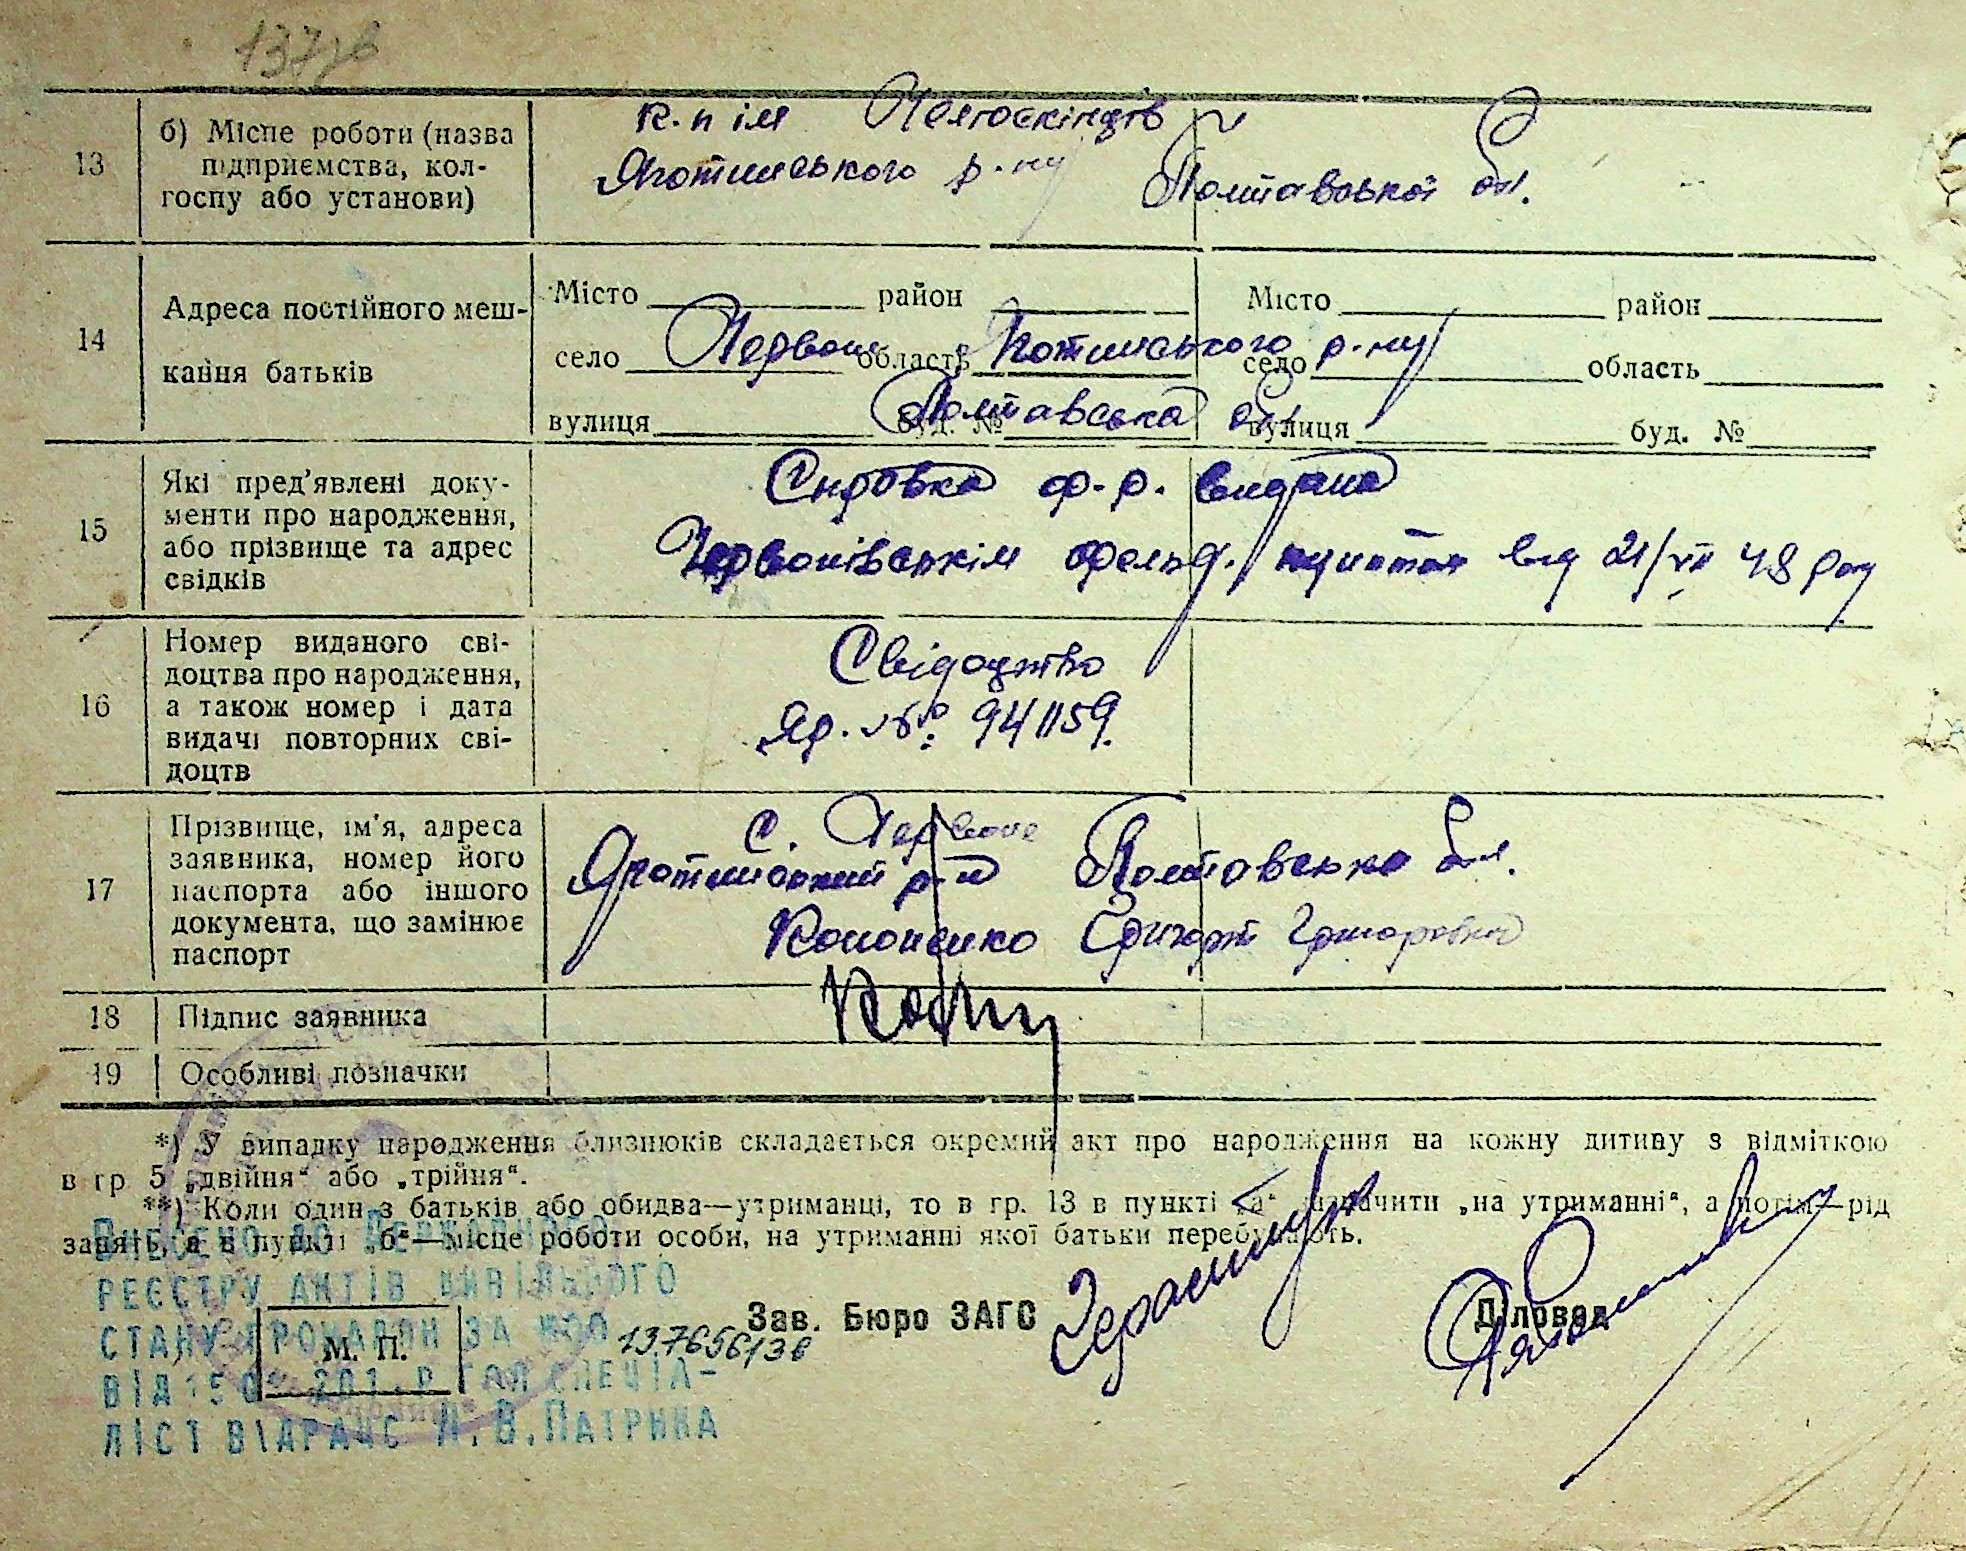 13
б) Місце роботи (назва
підприємства, кол-
госпу або установи)
к.п ім Челюскінців
Яготинського р-ну Полтавської обл.
14
Адреса постійного меш-
кання батьків
Місто район Місто район
село Червоне область Яготинського р-ну село область
вулиця буд. № Полтавська обл. вулиця буд. №
15
Які пред'явлені доку-
менти про народження,
або прізвище та адрес
свідків
Справка ф-р. видана
фельд. пунктом від 21/VII 48 року
16
Номер виданого сві-
доцтва про народження,
а також номер і дата
видачі повторних сві-
доцтв
Свідоцтво
Яр. № 941159.
17
Прізвище, ім'я, адреса
заявника, номер його
паспорта або іншого
документа, що замінює
паспорт
с. Червоне
Яготинський р-н Полтавська обл.
Кононенко Григорій Григорович
18
Підпис заявника
19
Особливі позначки
*) У випадку народження близнюків складається окремий акт про народження на кожну дитину з відміткою
в гр 5 „двійня“ або „трійня“.
**) Коли один з батьків або обидва—утриманці, то в гр. 13 в пункті „а“ зазначити „на утриманні“, а потім—рід
занять, а в пункті „б“—місце роботи особи, на утриманні якої батьки перебувають.
Внесено до Державного
реєстру актів цивільного
стану громадян за №
Зав. Бюро ЗАГС
Діловод
М. П.
ліст ВДРАЦС Н.В.Патрина